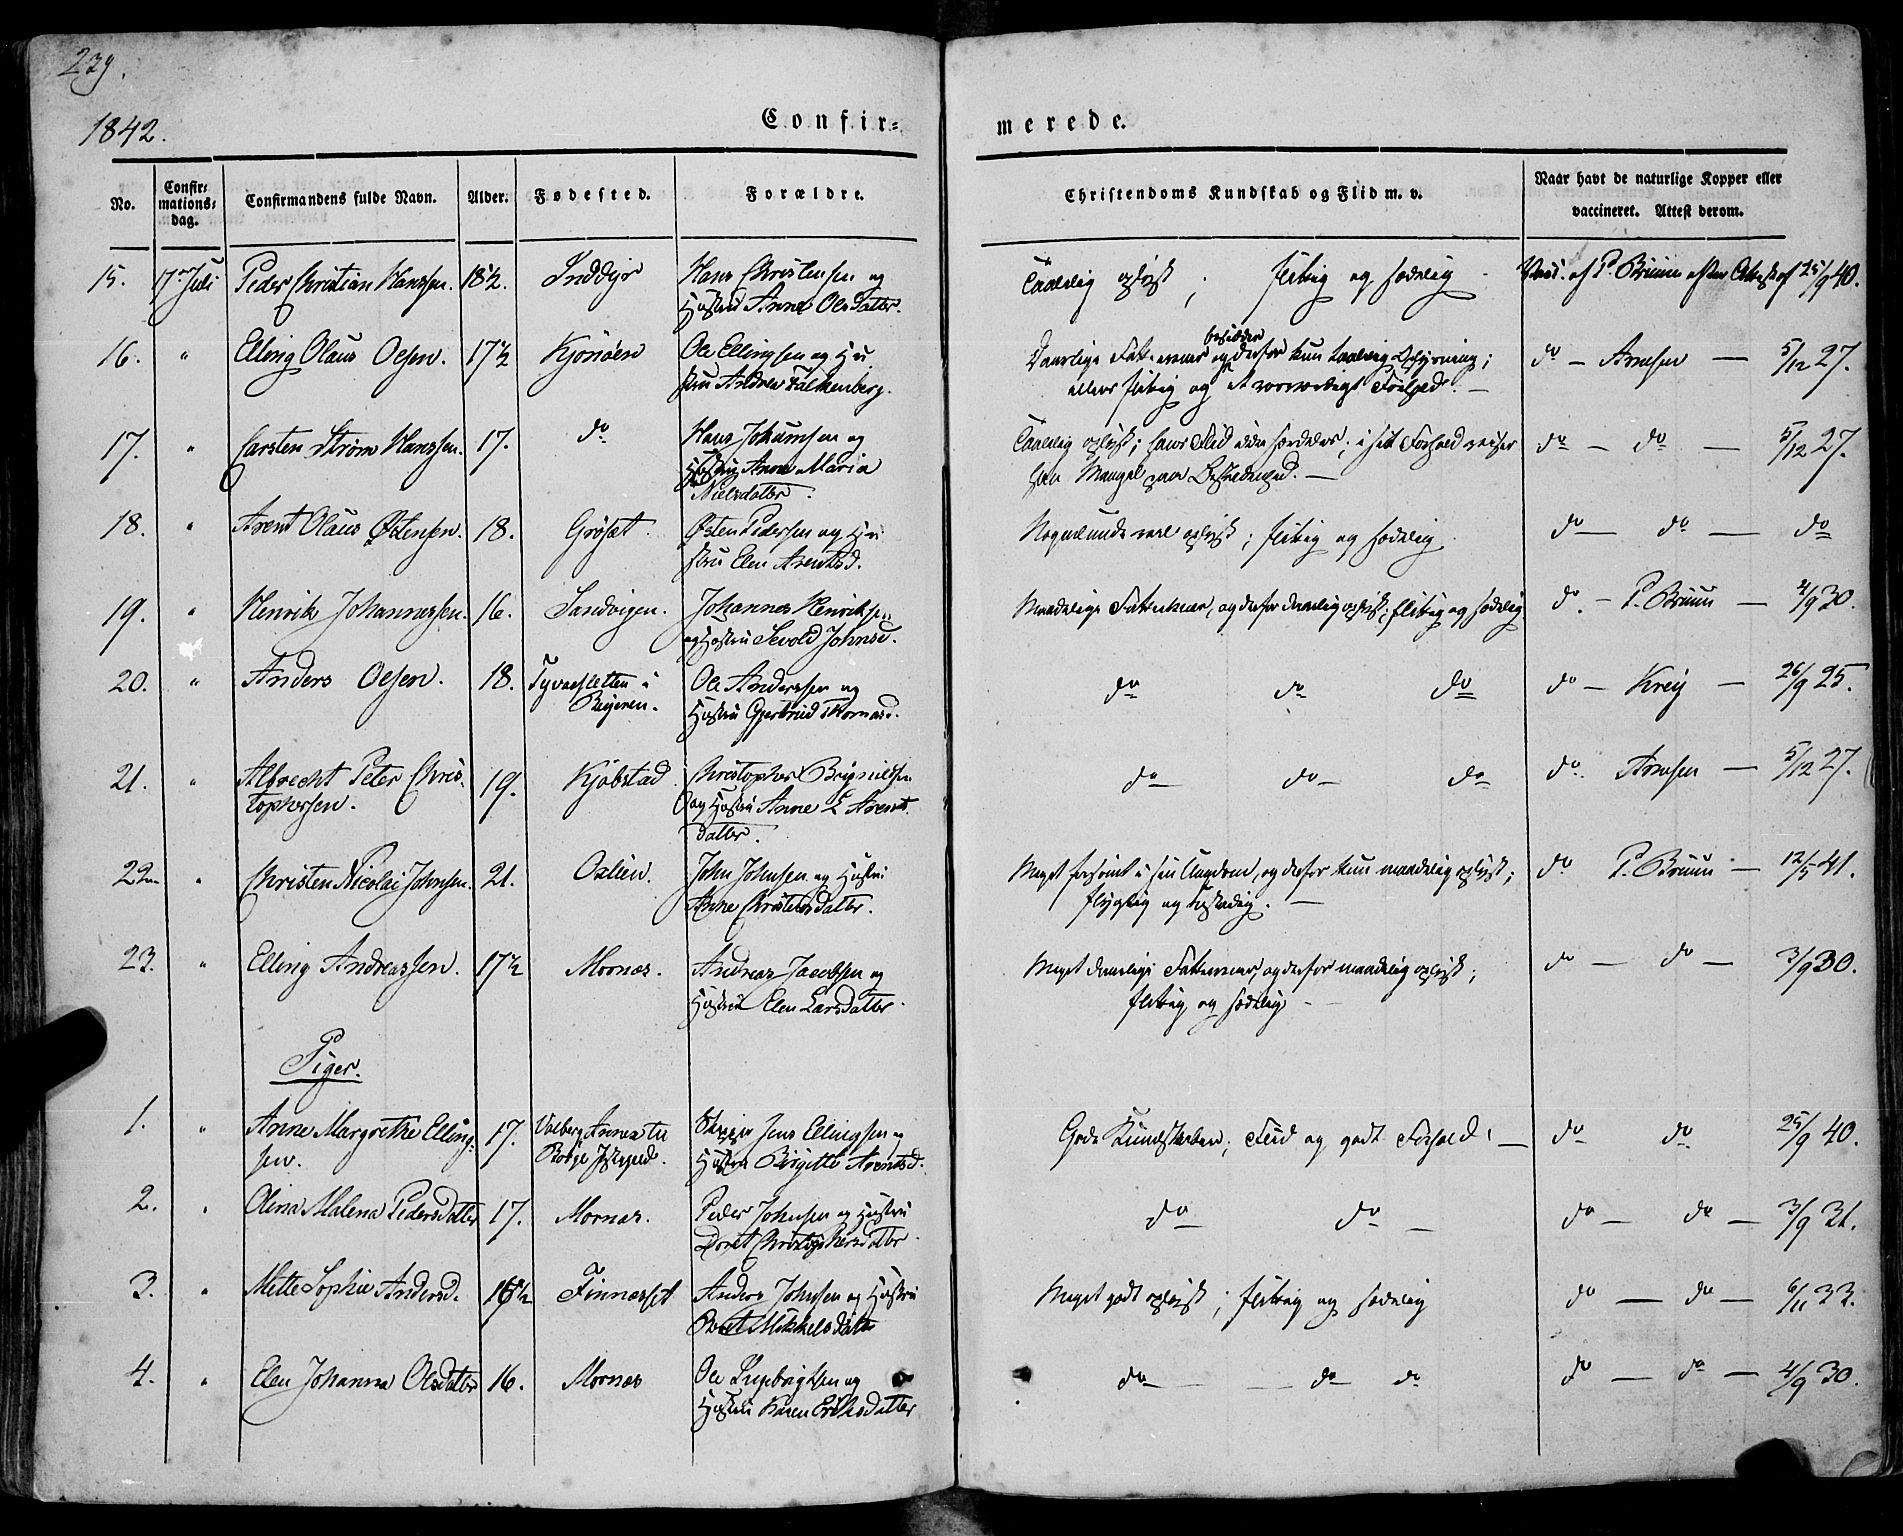 239.
1842.
Confir=
merede.
No.
Confir=
mations=
dag.
Confirmandens fulde Navn.
Alder.
Fødested.
Forældre.
Christendoms Kundskab og Flid m. v.
Naar havt de naturlige Kopper eller
vaccineret. Attest derom.
15. 17de Juli Peder Christian Hanssen. 18½. Inddyr Hans Christensen og
Hustru Anne Olsdatter.
Taalelig oplyst ; flittig og sædelig Vacc. af P. Bruun efter Attest af 25/9 40.
16. " Elling Olaus Olsen. 17½ Kjønøen Ole Ellingsen og Hu
stru Andrea Falkenberg.
besidder
Daarlige Fatteevner og derfor kun taalelig Oplysning;
ellers flittig og et roesværdigt Forhold. —
do — Arnesen — 5/12 27.
17. " Carsten Strøm Hanssen. 17. do Hans Johansen og
Hustru Anne Maria
Nielsdatter.
Taalelig oplyst; hans Flid ikke særdeles; i sit Forhold viiser
han Mangel paa Beskedenhed. —
do — do — 5/12 27.
18. " Arent Olaus Østensen. 18. Grøsæt. Østen Pedersen og Hu
stru Elen Arentsd.
Nogenlunde vel oplyst; flittig og sædelig. do — do — do
19. " Henrik Johannessen. 16. Sandvigen. Johannes Henriksen
og Hustru Sevold Johnsd.
Maadelige Fatteevner, og derfor daarlig oplyst; flittig og sædelig do. — P. Bruun — 4/9 30.
20. " Anders Olsen. 18. Tyvaasletten i
Beyeren.
Ole Anderssen og
Hustru Gjertrud Thomasd.
do do do do — Krey — 26/9 25.
21. " Albrecht Peter Chris
tophersen.
19. Kjøbstad Christopher Brynildsen
og Hustru Anne L Arents
datter.
do — do — do do. Arnesen — 5/12 27.
22. " Christen Nicolai Johnsen. 21. Oxlien. John Johnsen og Hustru
Anne Christensdatter.
Meget forsømt i sin Ungdom, og derfor kun maadelig oplyst;
flygtig og ustadig. —
do P. Bruun — 12/5 41.
23. " Elling Andreassen. 17½ Mornes. Andreas Jacobsen og
Hustru Elen Larsdatter.
Meget daarlige Fatteevner, og derfor maadelig oplyst;
flittig og sædelig —
do — do — 3/9 30.
Piger.
1. " Anne Margrethe Elling
sen.
17. Valberg Annex til
Borge
Skipper Jens Ellingsen og
Hustru Birgitte Arentsd.
Gode Kundskaber; Flid og godt Forhold. — do do 25/9 40.
2. " Olina Malena Pedersdatter 17. Mornes. Peder Johnsen og Hustru
Doret Christophersdatter.
do — do — do — do — 3/9 31.
3. " Mette Sophie Andersd. 16½ Finnesset Anders Johnsen og Hustru
Beret Mikkelsdatter
Meget godt oplyst; flittig og sædelig do — do — 6/11 33.
4. " Elen Johanna Olsdatter 16. Mornes Ole Ingebrigtsen og
Hustru Karen Eriksdatter
do — do do do — do — 4/9 30.